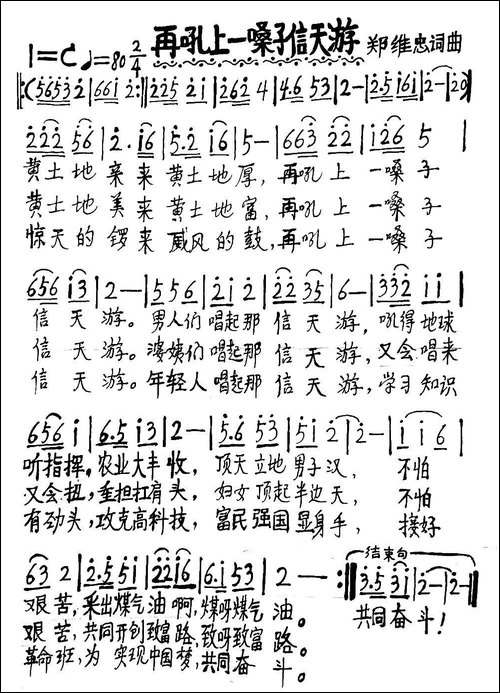 再吼上一嗓子信天游 郑维忠词曲
1=C ♩=80 2/4
‖:(56532|661 2:‖225 21|262 4|4.6 53|2-|2.5 161|2-|20)
222 56|2. 16|5.2 16|5-|663 22|126 5|
黄土地亲来黄土地厚,再吼上一嗓子
黄土地美来黄土地富,再吼上一嗓子
惊天的锣来威风的鼓,再吼上一嗓子
656 13|2-|556|212|22 35|6-|332 11|
信天游。男人们唱起那信天游,吼得地球
信天游。婆姨们唱起那信天游,又会唱来
信天游。年轻人唱起那信天游,学习知识
656 1|6.5 13|2-|5.6 53|51 2|2-|116|
听指挥,农业大丰收,顶天立地男子汉,不怕
又会扭,重担扛肩头,妇女顶起半边天,不怕
有劲头,攻克高科技,富民强国显身手,接好
结束句
63 2|2.5 51|2216|6.1 53|2-:‖3.5 31|2-|2-‖
艰苦,采出煤气油啊,煤呀煤气油。 共同奋斗!
艰苦,共同开创致富路,致呀致富路。
革命班,为实现中国梦,共同奋斗。